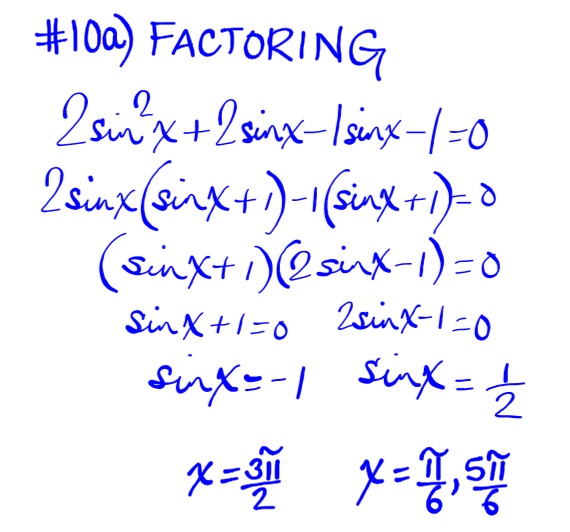 #10a) FACTORING
2sin²x+2sinx-1sinx-1=0
2sinx(sinx+1)-1(sinx+1)=0
(sinx+1)(2sinx-1)=0
sinx+1=0 2sinx-1=0
sinx=-1 sinx=1/2
x=3π/2 x=π/6, 5π/6